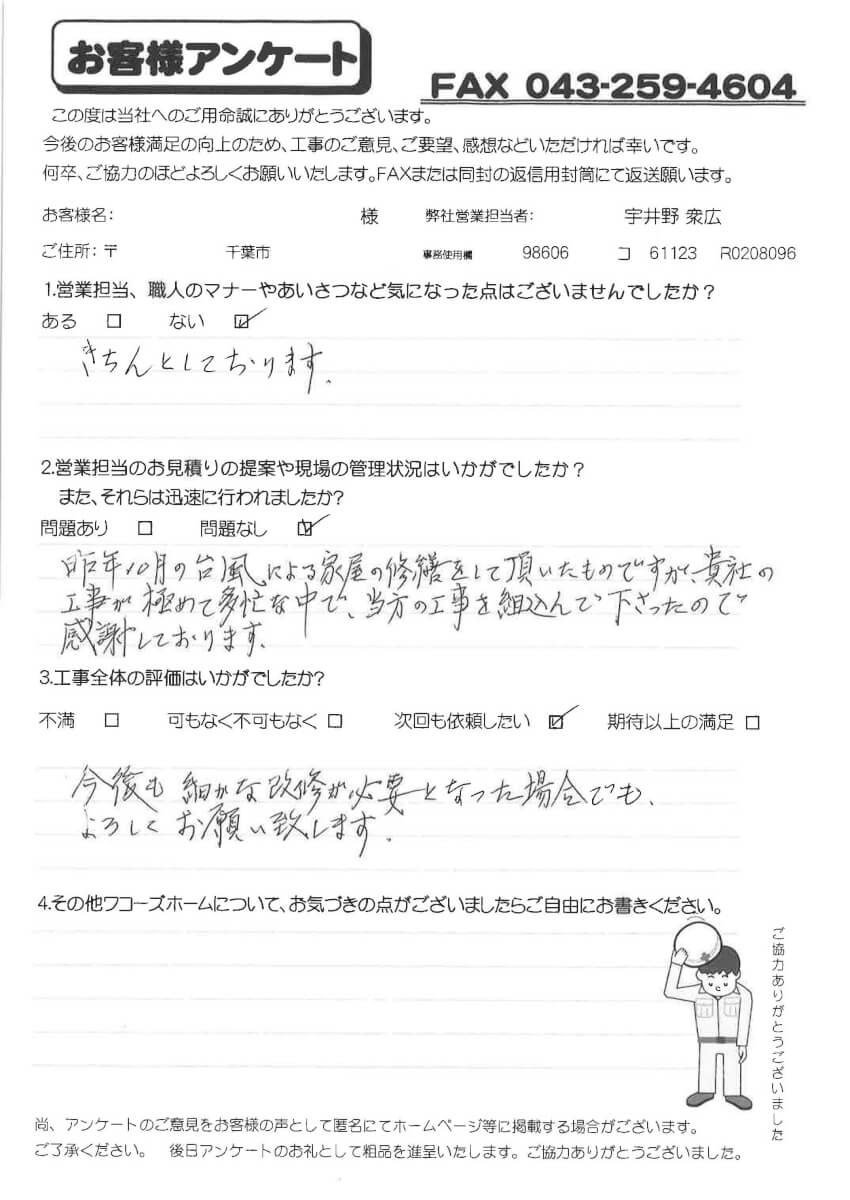 お客様アンケート
FAX 043-259-4604
この度は当社へのご用命誠にありがとうございます。
今後のお客様満足の向上のため、工事のご意見、ご要望、感想などいただければ幸いです。
何卒、ご協力のほどよろしくお願いいたします。FAXまたは同封の返信用封筒にて返送願います。
お客様名: 様 弊社営業担当者: 宇井野 衆広
ご住所:〒 千葉市 事務使用欄 98606 コ 61123 R0208096
1.営業担当、職人のマナーやあいさつなど気になった点はございませんでしたか？
ある □ ない ☑
きちんとしております。
2.営業担当のお見積りの提案や現場の管理状況はいかがでしたか？
また、それらは迅速に行われましたか?
問題あり □ 問題なし ☑
昨年10月の台風による家屋の修繕をして頂いたものですが、貴社の
工事が極めて多忙な中で、当方の工事を組込んで下さったので
感謝しております。
3.工事全体の評価はいかがでしたか?
不満 □ 可もなく不可もなく □ 次回も依頼したい ☑ 期待以上の満足 □
今後も細かな改修が必要となった場合でも、
よろしくお願い致します。
4.その他ワコーズホームについて、お気づきの点がございましたらご自由にお書きください。
ご協力ありがとうございました
尚、アンケートのご意見をお客様の声として匿名にてホームページ等に掲載する場合がございます。
ご了承ください。 後日アンケートのお礼として粗品を進呈いたします。ご協力ありがとうございました。